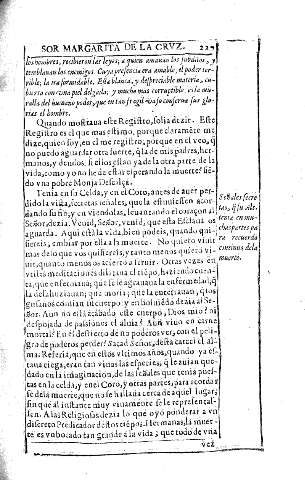 SOR MARGARITA DE LA CRVZ. 225
los honores, recibieron las leyes; a quien amauan los subditos, y
temblauan los enemigos. Cuya presencia era amable, el poder ter-
rible; la ira formidable. Ella blanca, y despreciable materia, cu-
bierta con vna piel delgada; y mucho mas corruptible. esta mu-
ralla del humano poder, que en tan fragil vaso conserua sus glo-
rias el hombre.
Quando mostraua este Registro, solia dezir. Este
Registro es el que mas estimo, porque claraméte me
dize, quien soy, en el me registro, porque en el veo, q̃
no puedo aguardar otra suerte, q̃ la de mis padres, her-
manos, y deudos, si ellos estan ya de la otra parte de la
vida, como yo no he de estar esperando la muerte? sié-
do vna pobre Monja Descalça.
Tenia en su Celda, y en el Coro, antes de auer per-
dido la vista, secretas señales, que la estuuiessen acor-
dando su fin, y en viendolas, leuantando el coraçon al
Señor, dezia. Venid, Señor, venid, que esta Esclaua os
aguarda. Aqui está la vida, bien podeis, quando qui-
sieréis, embiar por ella a la muerte. No quiero viuir
mas de lo que vos quisiereis, y tanto menos quiero vi-
uir, quanto menos os acierto a seruir. Otras vezes en
vtiles meditaciones dilataua el tiépo, haziendo cuen-
ta, que enfermaua; que se le agrauaua la enfermedad, q̃
la desahuziauan; que moria; que la enterrauan, q̃ los
gusanos comian su cuerpo, y
Aun no está acabado este cuerpo, Dios mio? ni
despojada de passiones el alma? Aun viuo en carne
mortal? En él desierto de no poderos ver, con el peli-
gro de poderos perder? Sacad Señor, desta carcel el al-
ma. Referia, que en estos vltimos años, quando ya es-
taua ciega, eran tan viuas las especies, q̃ le auian que-
dado en la imaginacion, de las señales que tenia pues-
tas en la celda, y en el Coro, y otras partes, para acordar
se de la muerte, que no se hallaua cerca de aquel lugar,
sin que al instante muy viuamente se le representas-
len. A las Religiosas dezia lo que oyó ponderar a vn
discreto Predicador destos tiépos. Hermanas, la muer-
te es vn bocado tan grande a la vida; que todo de vna
vez
Señales secre-
tas, q̃ la
en mu-
chas partes pa
ra recuerdo
continuo de la
muerte.